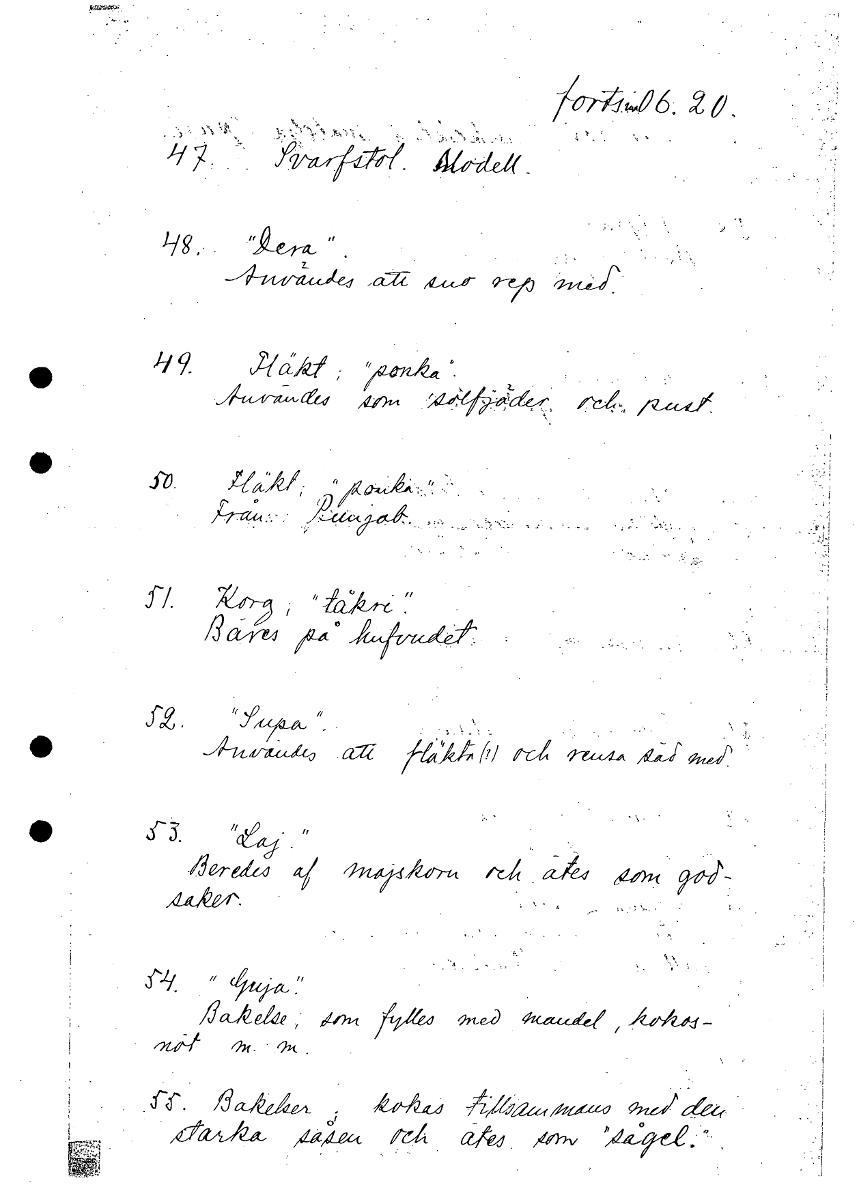 forts. 06. 20.
47. Svarfstol. Modell.
48. "Dera".
Användes att sno rep med.
49. Fläkt, "ponka".
Användes som solfjäder och pust.
50. Fläkt, "ponka"
Från Punjab.
51. Korg, "tåkri".
Bäres på hufvudet.
52. "Supa".
Användes att fläkta(!) och rensa säd med.
53. "Laj."
Beredes af majskorn och ätes som god-
saker.
54. "Guja".
Bakelse, som fylles med mandel, kokos-
nöt m. m.
55. Bakelser, kokas tillsammans med den
starka såsen och ätes som "sågel."